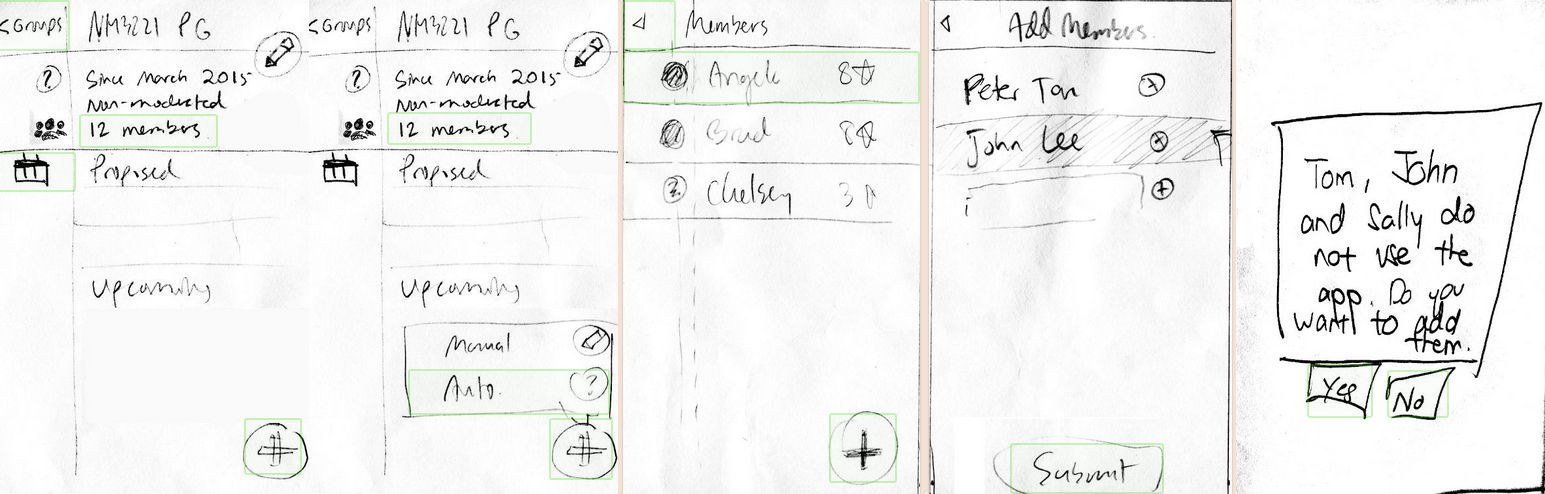 < Groups
NM3221 PG
?
Since March 2015
Non-moderated
12 members
Proposed
Upcoming
+
< Groups
NM3221 PG
?
Since March 2015
Non-moderated
12 members
Proposed
Upcoming
Manual
Auto.
?
+
Members
Angela 8
Brad 8
? Chelsey 3
+
Add Members
Peter Tan x
John Lee x
+
Submit
Tom, John
and Sally do
not use the
app. Do you
want to add
them.
Yes No